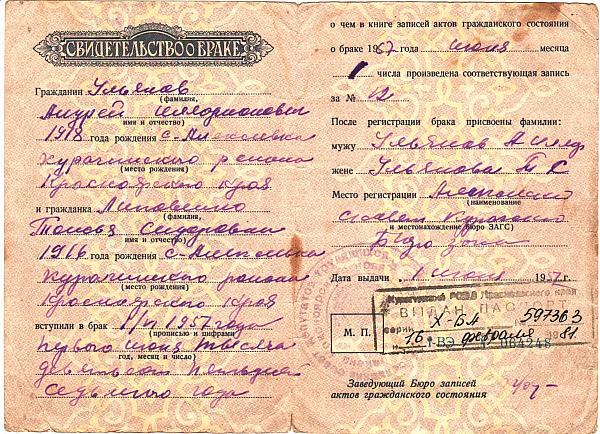 СВИДЕТЕЛЬСТВО О БРАКЕ
Гражданин Ульянов
(фамилия,
Андрей
имя и отчество)
1918 года рождения с.
Курагинского района
(место рождения)
Красноярского края
и гражданка
(фамилия,
Таисья
имя и отчество)
1916 года рождения с.
Курагинского района
(место рождения)
Красноярского края
вступили в брак 1957 года
прописью и цифрами
первого июня тысяча
год, месяц и число)
девятьсот пятьдесят
седьмого года
о чем в книге записей актов гражданского состояния
о браке 1957 года июня месяца
1 числа произведена соответствующая запись
за № 12
После регистрации брака присвоены фамилии:
мужу Ульянов
жене Ульянова Т
Место регистрации
(наименование
и местонахождение бюро ЗАГС)
Бюро
Дата выдачи 1 июня 1957 г.
М. П.
Курагинский РОВД Красноярского края
ВЫДАН ПАСПОРТ
серии X-БА 597363
16 февраля 1981
Заведующий Бюро записей
актов гражданского состояния